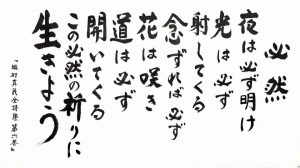 必然
夜は必ず明け
光は必ず
射してくる
念ずれば必ず
花は咲き
道は必ず
開いてくる
この必然の祈りに
生きよう
『坂村真民全詩集第六巻』